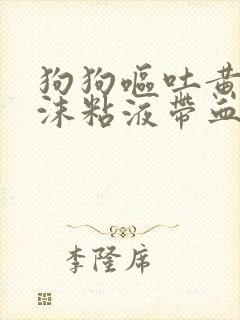 狗狗嘔吐黃
沫粘液帶血
李隆席